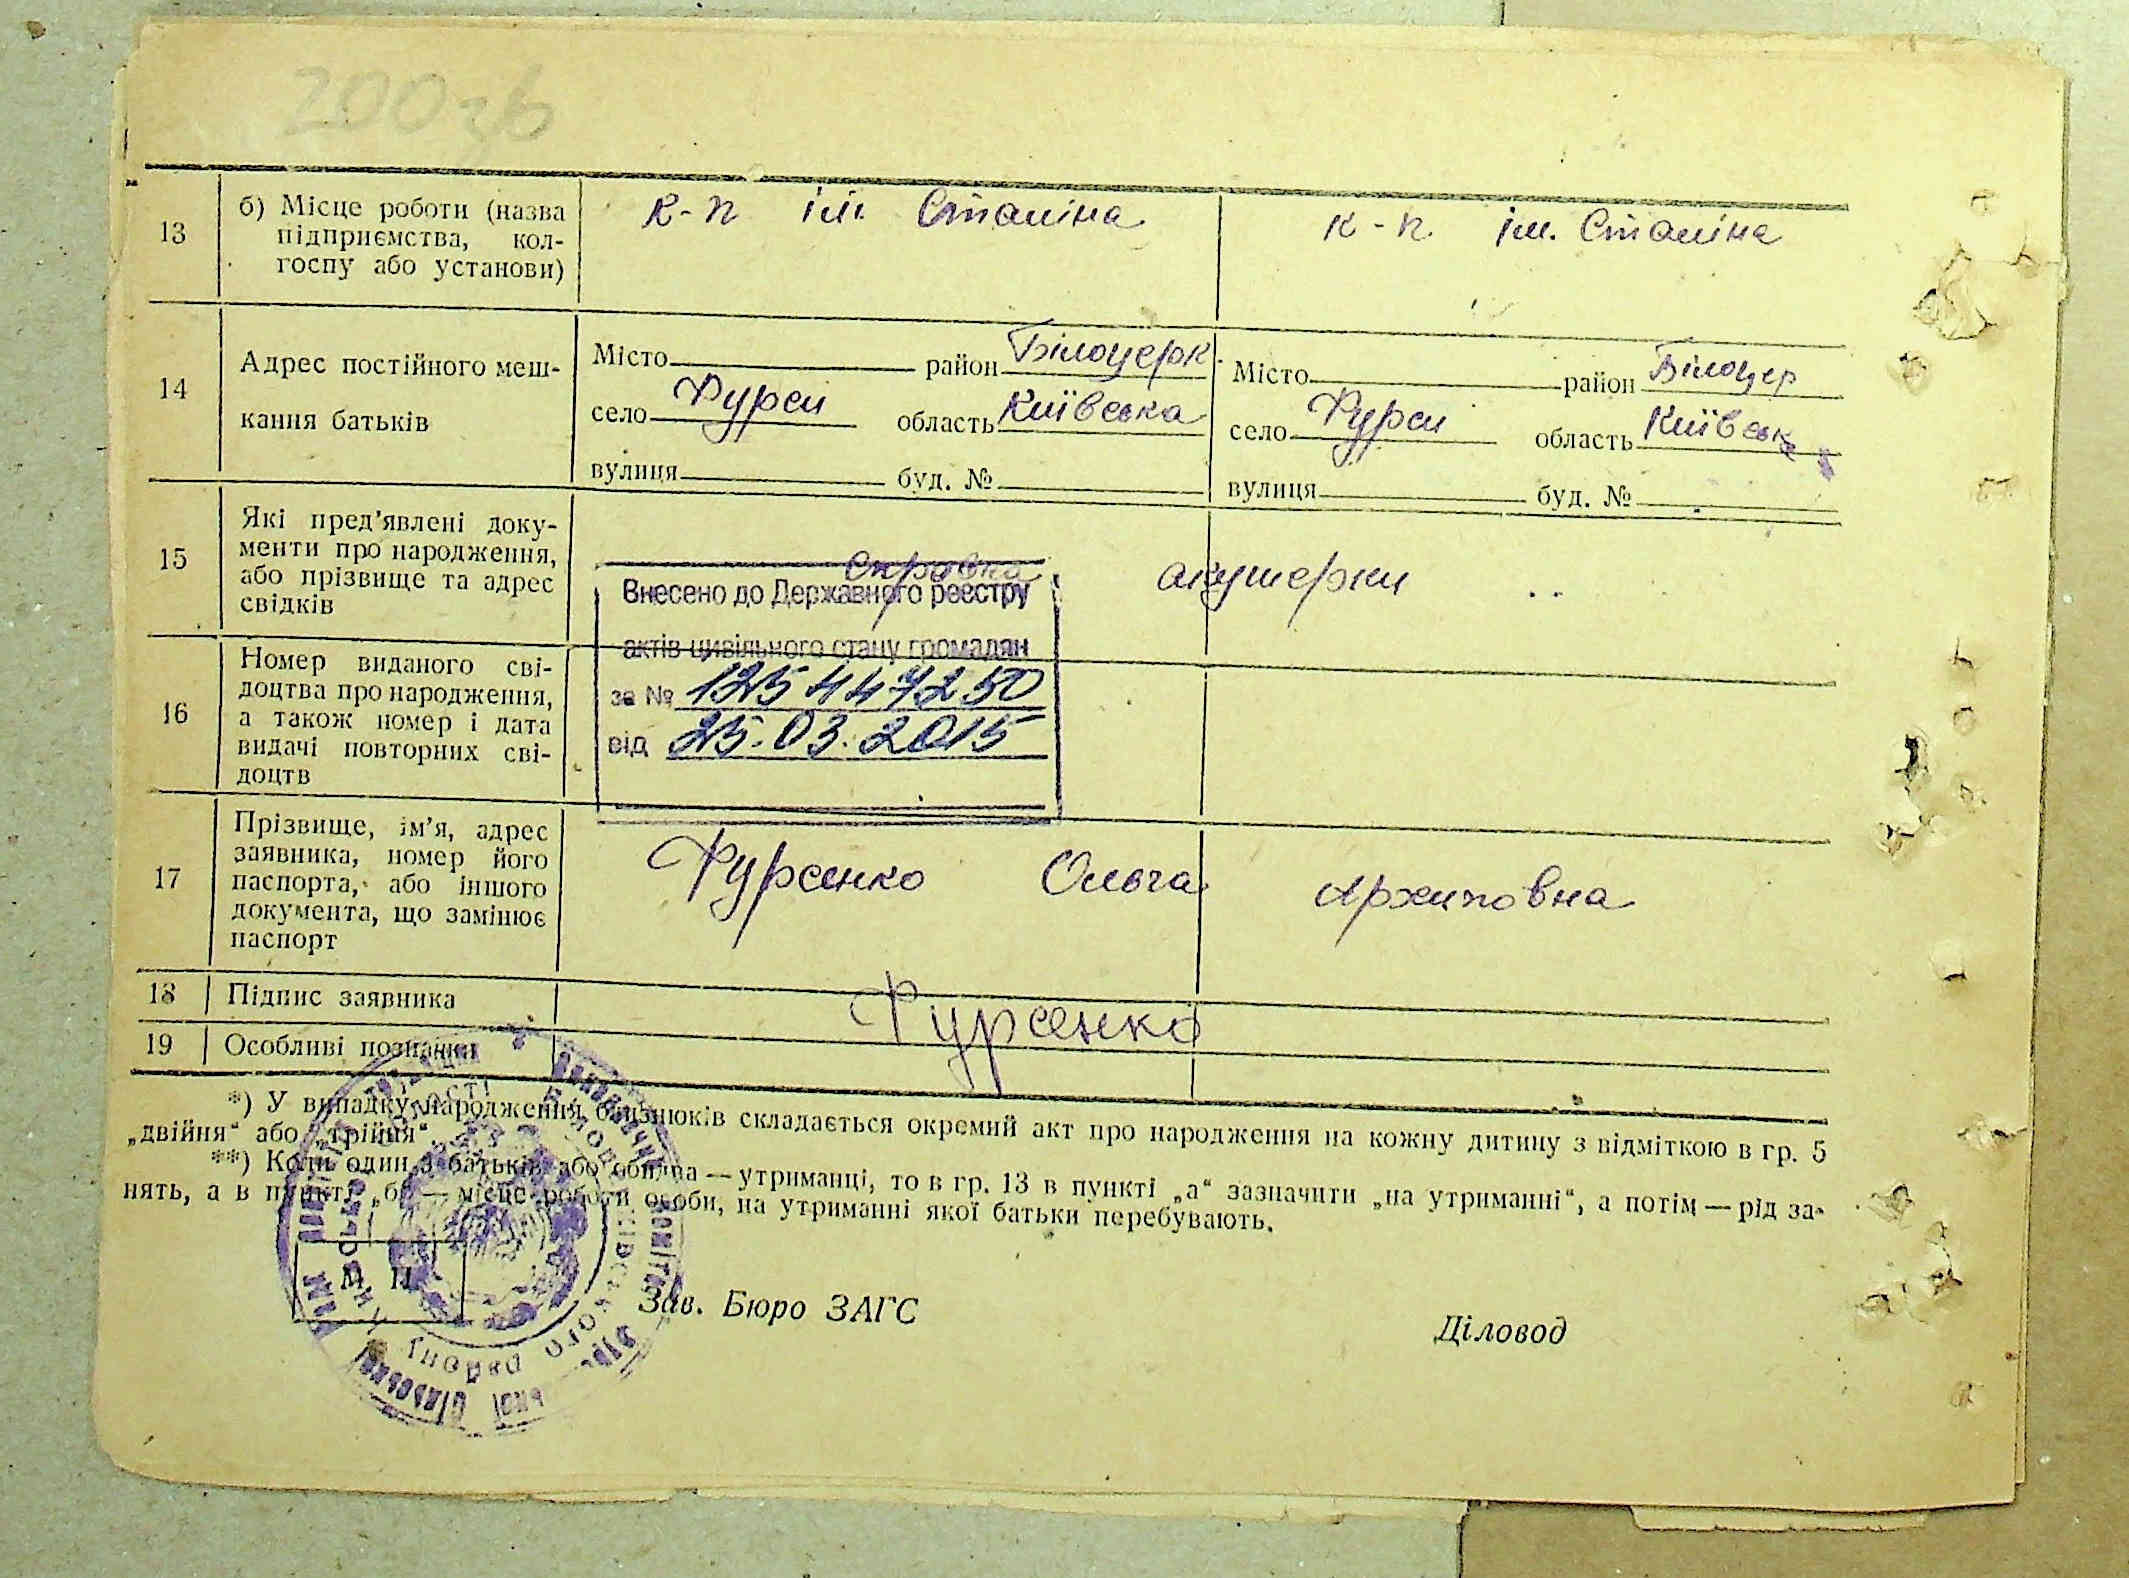 200зв
13
б) Місце роботи (назва
підприємства, кол-
госпу або установи)
к-п ім. Сталіна
к-п. ім. Сталіна
14
Адрес постійного меш-
кання батьків
Місто район Білоцерк.
село Фурси область Київська
вулиця буд. №
Місто район Білоцер
село Фурси область Київськ
вулиця буд. №
15
Які пред'явлені доку-
менти про народження,
або прізвище та адрес
свідків
Справка акушерки
Внесено до Державного реєстру
актів цивільного стану громадян
за № 125447250
від 25.03.2015
16
Номер виданого сві-
доцтва про народження,
а також номер і дата
видачі повторних сві-
доцтв
17
Прізвище, ім'я, адрес
заявника, номер його
паспорта, або іншого
документа, що замінює
паспорт
Фурсенко Ольга Архиповна
18 Підпис заявника
Фурсенко
19 Особливі познаки
*) У випадку народження близнюків складається окремий акт про народження на кожну дитину з відміткою в гр. 5
„двійня“ або „трійня“.
**) Коли один з батьків або обидва — утриманці, то в гр. 13 в пункті „а“ зазначити „на утриманні“, а потім — рід за-
нять, а в пункті „б“ — місце роботи особи, на утриманні якої батьки перебувають.
М. П.
Зав. Бюро ЗАГС
Діловод